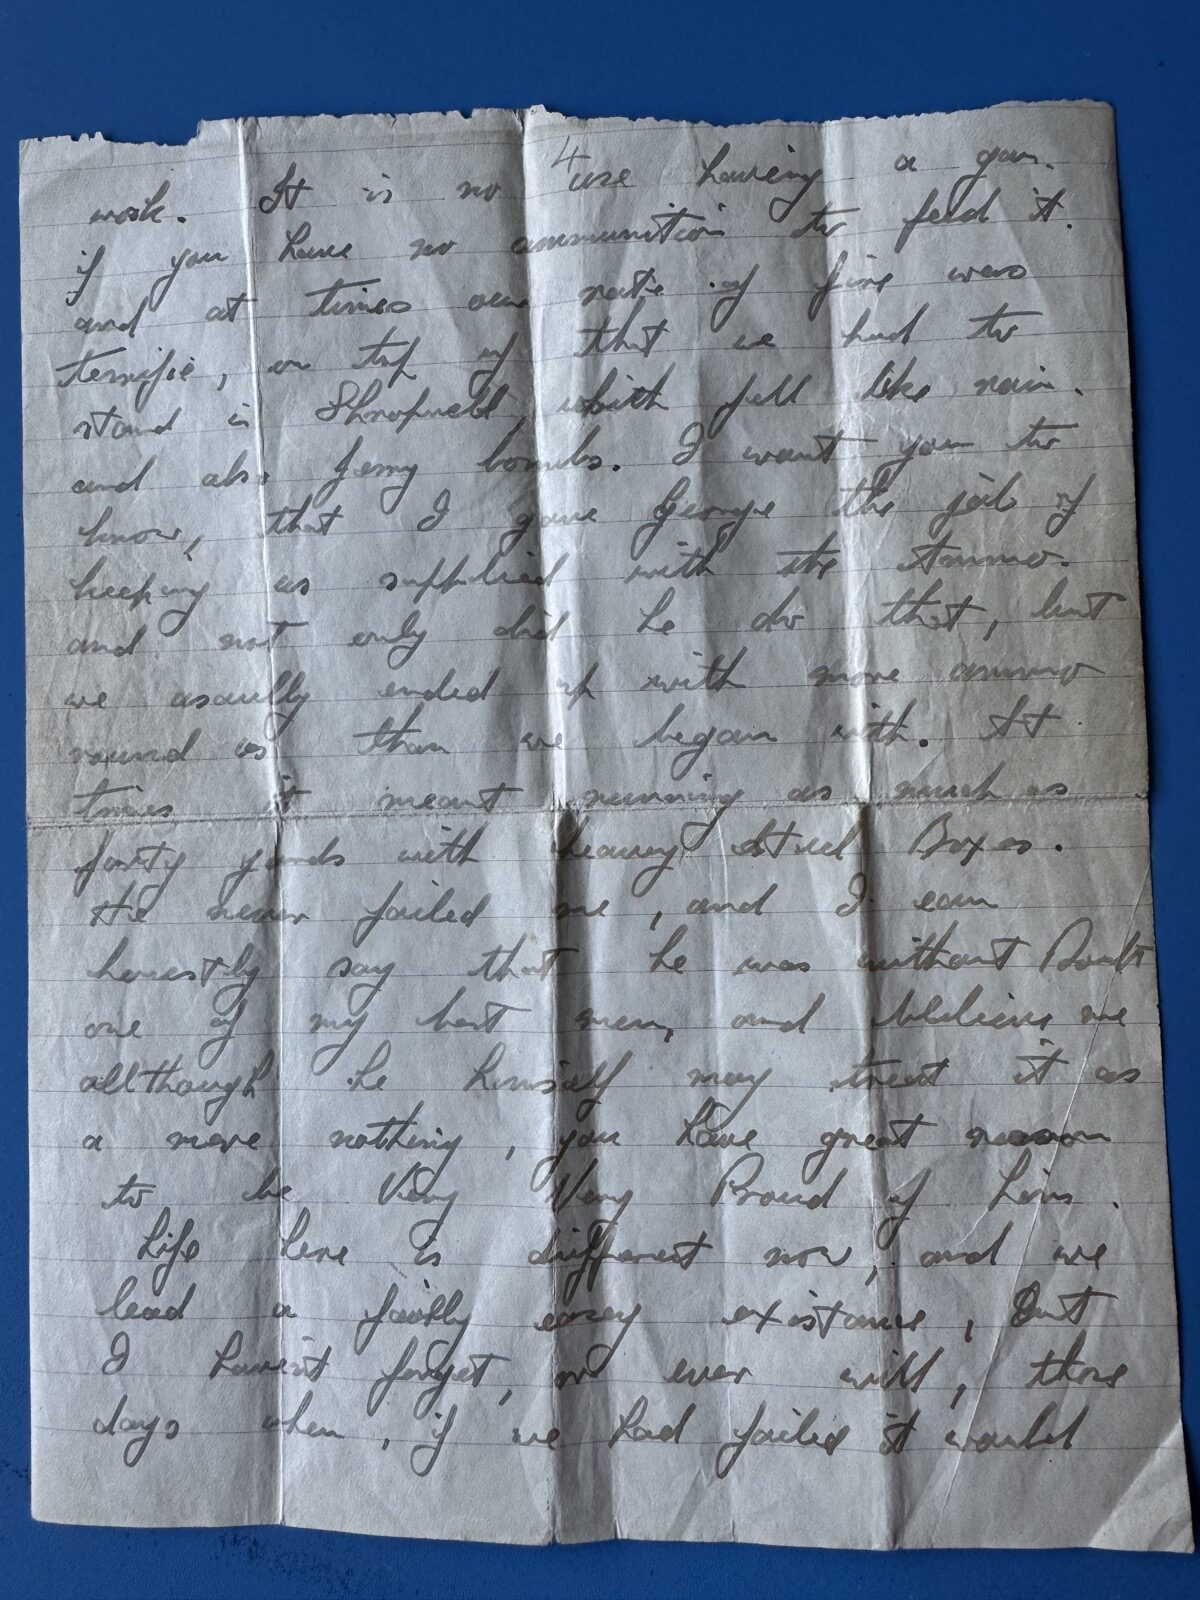 4
work. It is no use having a gun.
if you have no ammunition to feed it.
and at times our rate of fire was
terrific, on top of that we had to
stand in Shrapnell, which fell like rain.
and also Jerry bombs. I want you to
know, that I gave George the job of
keeping us supplied with the Ammo.
and not only did he do that, but
we usually ended up with more ammo
round us than we began with. At
times it meant running as much as
forty yards with heavy Steel Boxes.
He never failed me, and I can
honestly say that he was without Doubt
one of my best men, and beleive me
allthough he himself may treat it as
a mere nothing, you have great reason
to be Very Very Proud of him.
Life here is different now, and we
lead a fairly easy existance, But
I havent forget, or ever will, those
days when, if we had failed it would